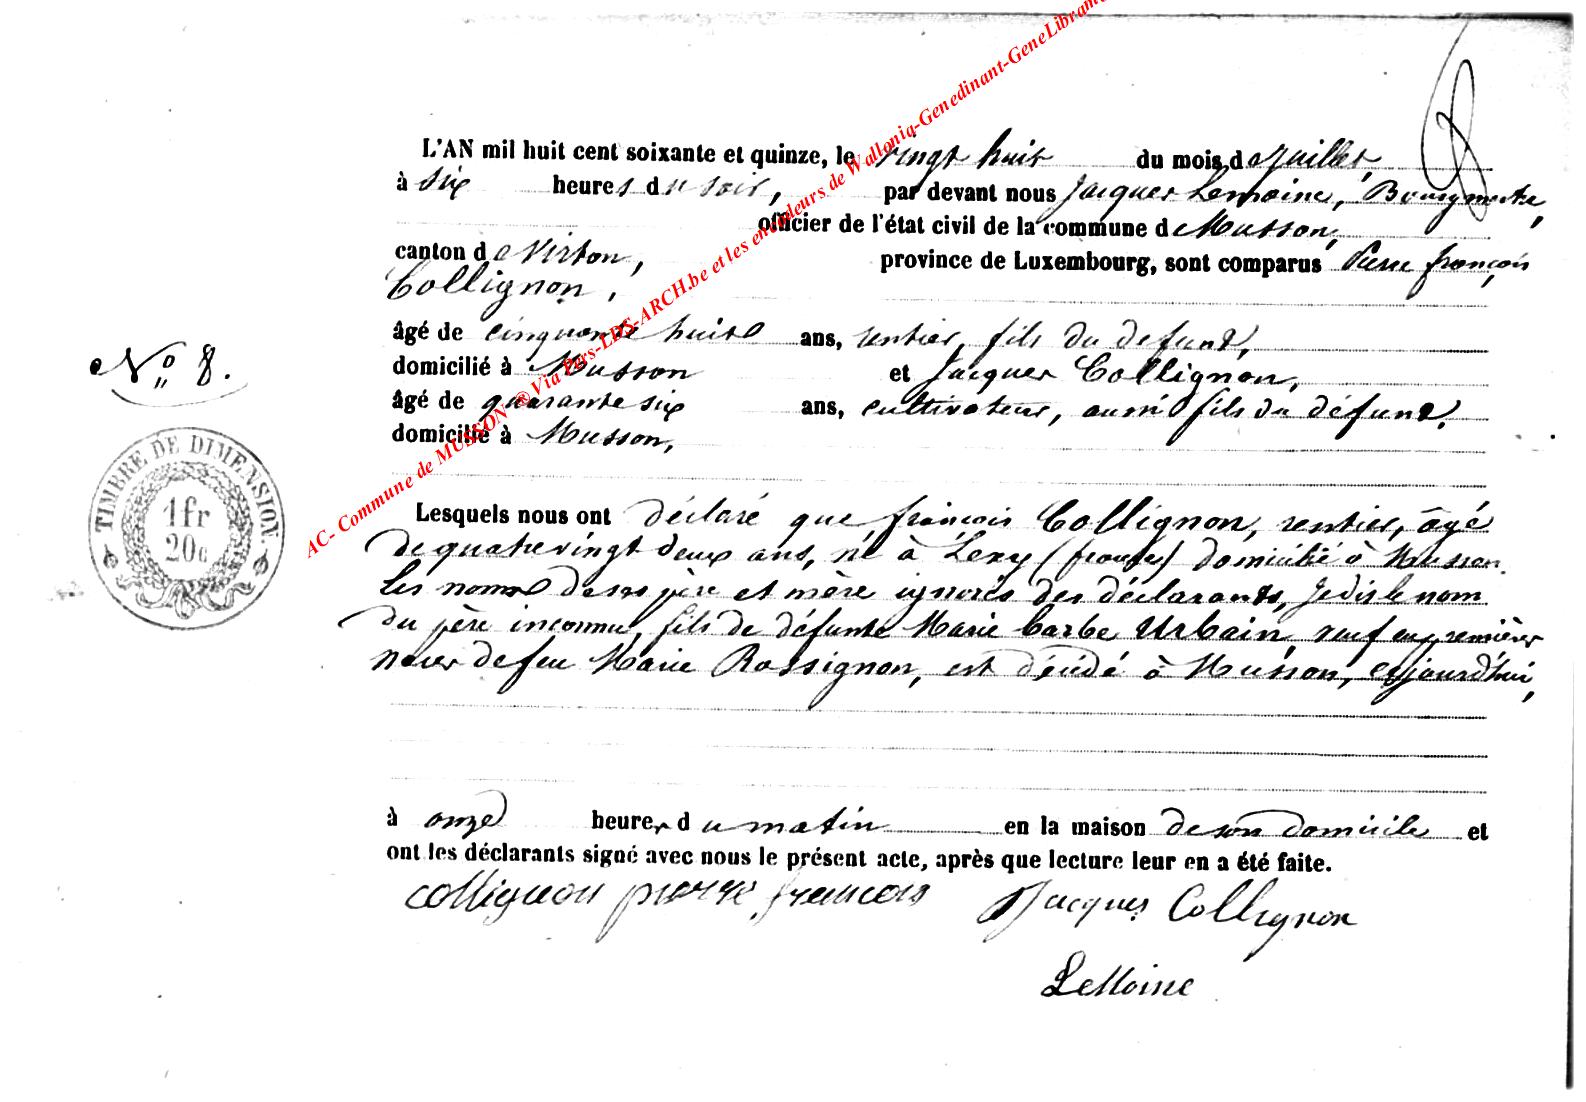 AC- Commune de MUSSON ® Via Pers-LDS-ARCH.be et les encodeurs de Walloniq-Genedinant-GeneLibramo
L'AN mil huit cent soixante et quinze, le vingt huit du mois de Juillet,
à six heures du soir, par devant nous Jacques Lemoine, Bourgmestre,
officier de l'état civil de la commune de Musson,
canton de Virton, province de Luxembourg, sont comparus Pierre françois
Collignon,
âgé de cinquante huit ans, rentier, fils du defunt,
domicilié à Musson et Jacques Collignon,
N° 8.
âgé de quarante six ans, cultivateur, aussi fils du défunt,
domicilié à Musson,
TIMBRE DE DIMENSION
1 fr
20c
Lesquels nous ont déclaré que françois Collignon, rentier, âgé
de quatrevingt deux ans, né à Lexy (france) domicilié à Musson
les noms de ses père et mère ignorés des déclarants, Je dis le nom
du père inconnu, fils de défunte Marie barbe Urbain, veuf en premières
noces de feu Marie Rossignon, est décédé à Musson, aujourd'hui,
à onze heures du matin en la maison de son domicile et
ont les déclarants signé avec nous le présent acte, après que lecture leur en a été faite.
collignon pierre francois Jacques Collignon
LeMoine